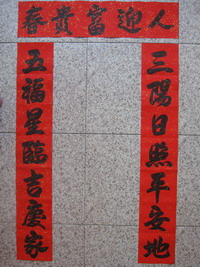 春貴富迎人
三陽日照平安地
五福星臨吉慶家